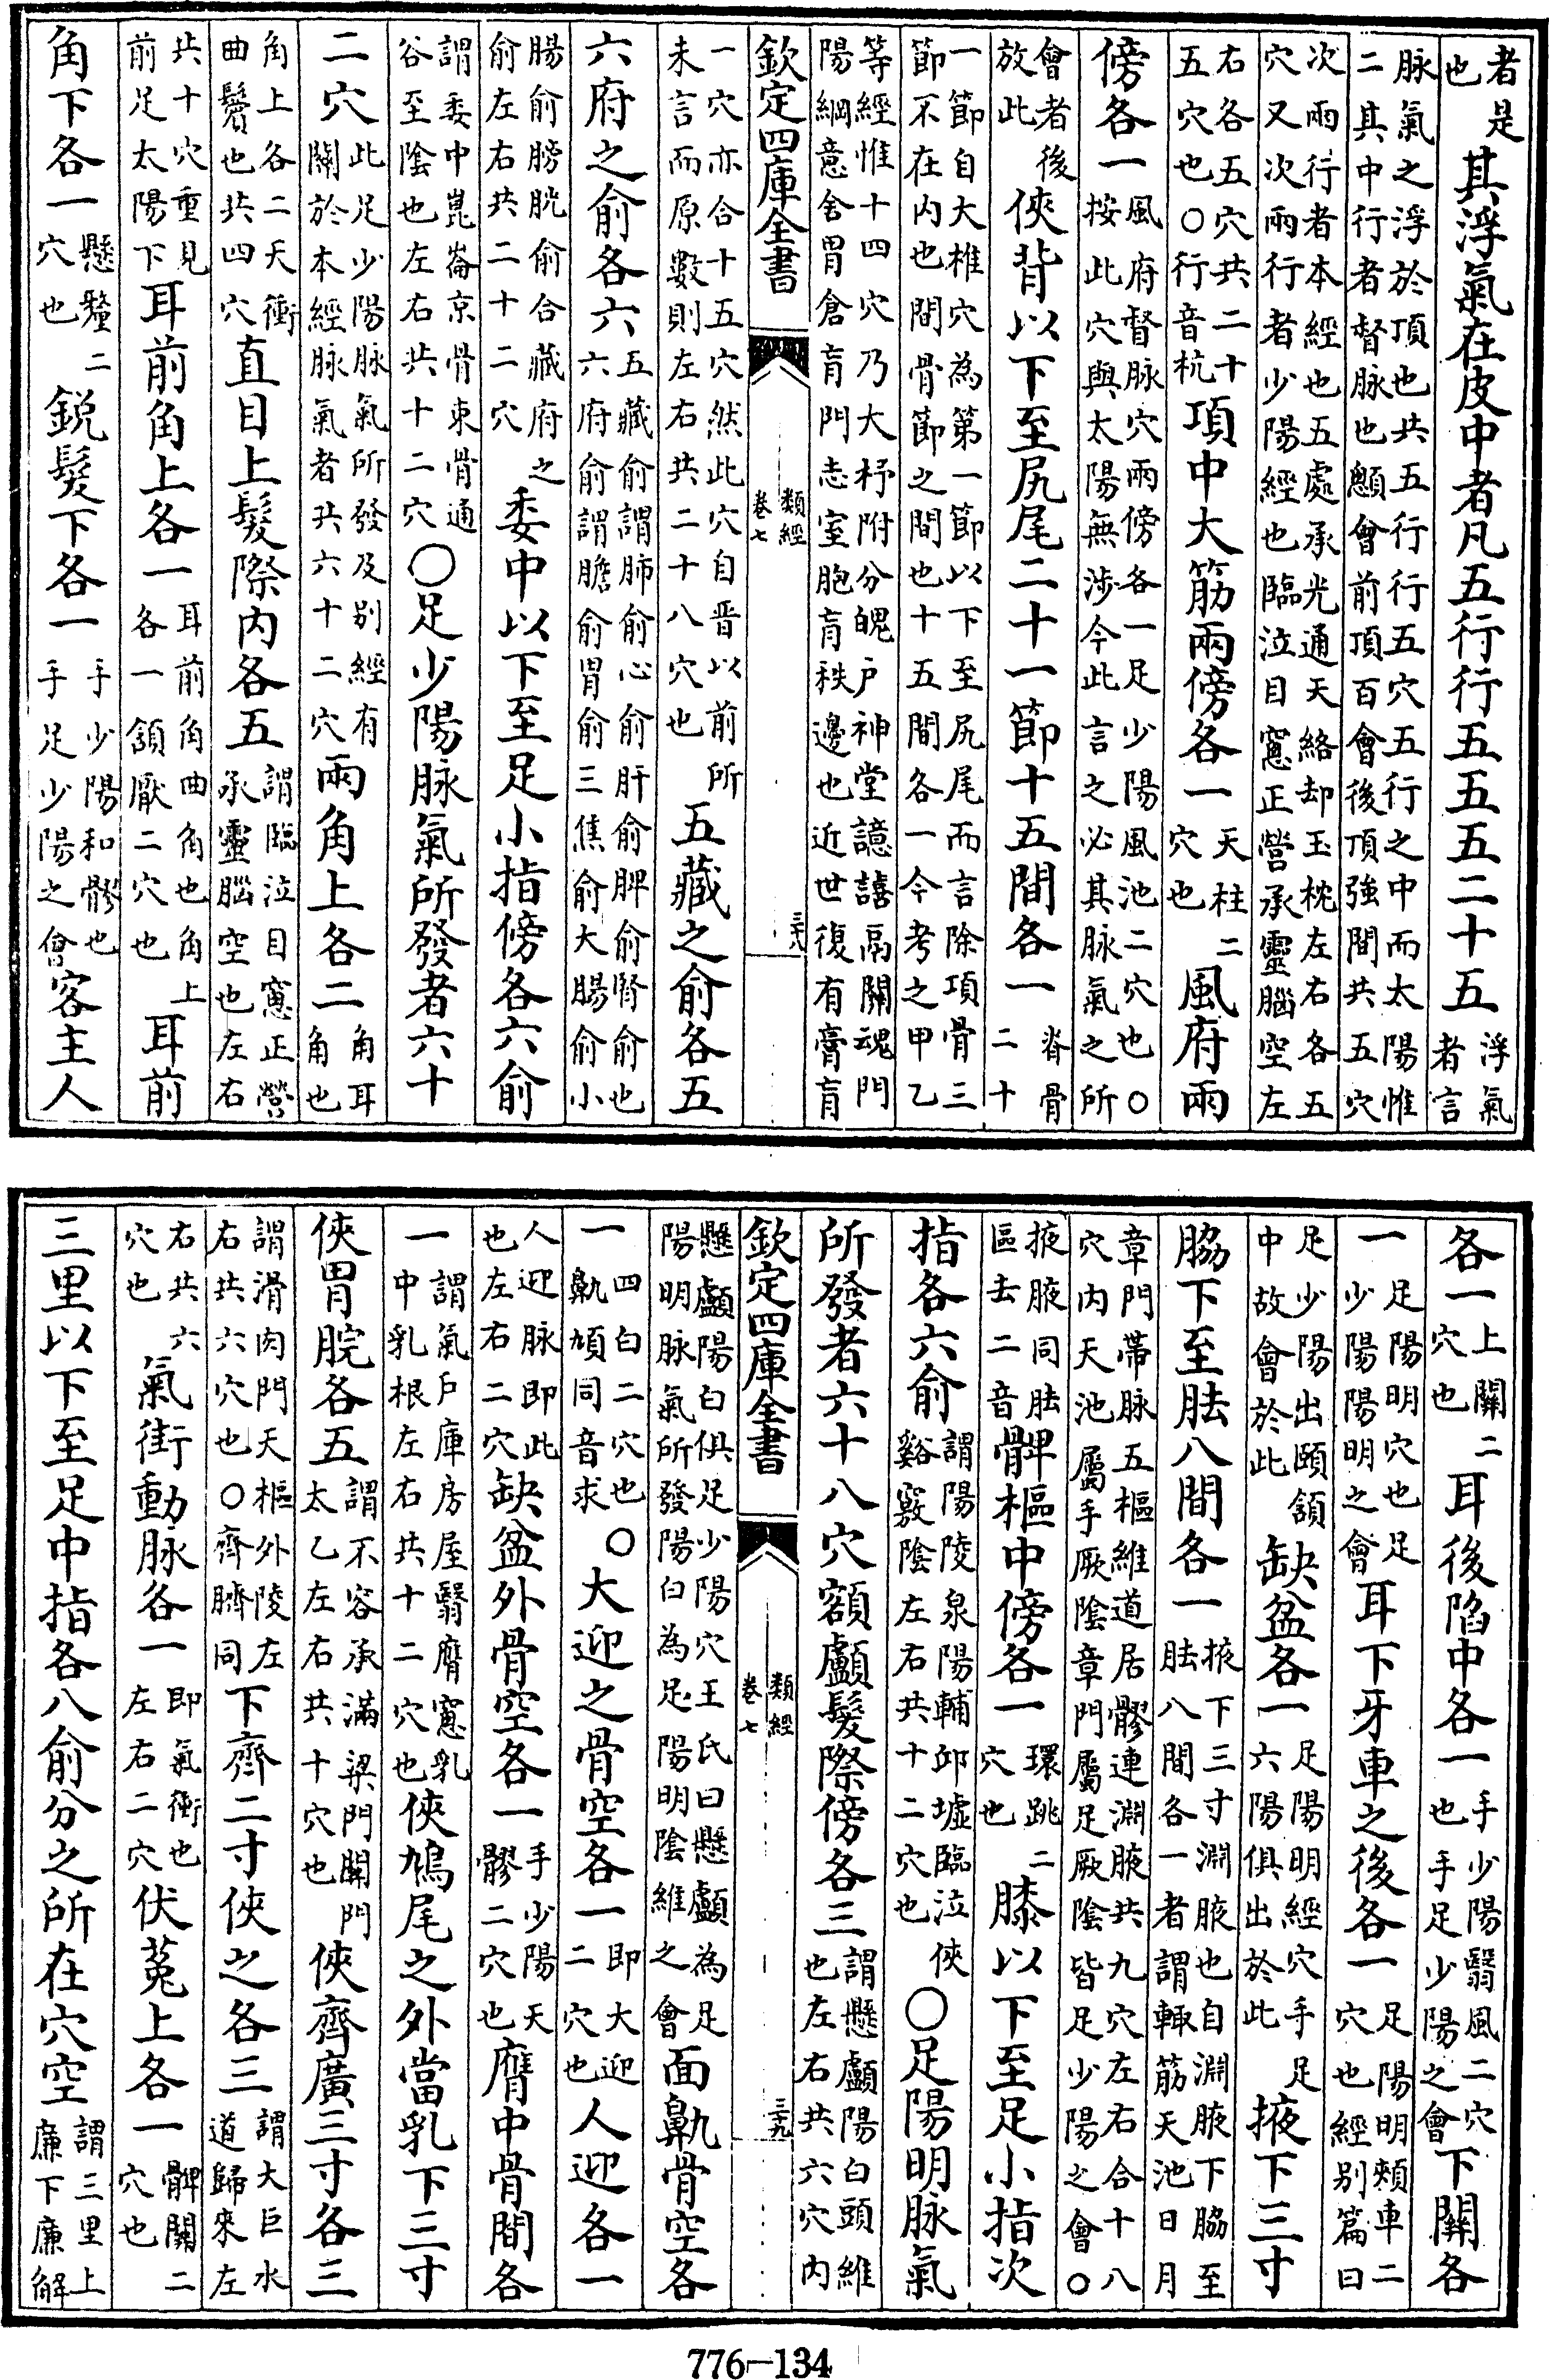 者是也其浮氣在皮中者凡五行行五五五二十五浮氣者言
脉氣之浮於頂也共五行行五穴五行之中而太陽惟二其中行者督脉也顖會前頂百會後頂強間共五穴
次兩行者本經也五處承光通天絡却玉枕左右各五穴又次兩行者少陽經也臨泣目窻正營承靈腦空左
右各五穴共二十五穴也○行音杭項中大筋兩傍各一天柱二穴也風府兩
傍各一風府督脉穴兩傍各一足少陽風池二穴也○按此穴與太陽無涉今此言之必其脉氣之所
會者後放此俠背以下至尻尾二十一節十五間各一脊骨二十
一節自大椎穴為第一節以下至尻尾而言除項骨三節不在内也間骨節之間也十五間各一今考之甲乙
等經惟十四穴乃大杼附分魄户神堂譩譆鬲關魂門陽綱意舍胃倉肓門志室胞肓秩邊也近世復有膏肓
欽定四庫全書
類經
卷七
三十八
一穴亦合十五穴然此穴自晋以前所未言而原數則左右共二十八穴也五藏之俞各五
六府之俞各六五藏俞謂肺俞心俞肝俞脾俞腎俞也六府俞謂膽俞胃俞三焦俞大腸俞小
腸俞膀胱俞合藏府之俞左右共二十二穴委中以下至足小指傍各六俞
謂委中崑崙京骨束骨通谷至陰也左右共十二穴○足少陽脉氣所發者六十
二穴此足少陽脉氣所發及别經有關於本經脉氣者共六十二穴兩角上各二角耳角也
角上各二天衝曲鬢也共四穴直目上髮際内各五謂臨泣目窻正營承靈腦空也左右
共十穴重見前足太陽下耳前角上各一耳前角曲角也角上各一頷厭二穴也耳前
角下各一懸釐二穴也鋭髮下各一手少陽和髎也手足少陽之會客主人
各一上關二穴也耳後陷中各一手少陽翳風二穴也手足少陽之會下關各
一足陽明穴也足少陽陽明之會耳下牙車之後各一足陽明頰車二穴也經别篇曰
足少陽出頤頷中故會於此缺盆各一足陽明經穴手足六陽俱出於此掖下三寸
脇下至胠八間各一掖下三寸淵腋也自淵腋下脇至胠八間各一者謂輒筋天池日月
章門帶脉五樞維道居髎連淵腋共九穴左右合十八穴内天池屬手厥陰章門屬足厥陰皆足少陽之會○
掖腋同胠區去二音髀樞中傍各一環跳二穴也膝以下至足小指次
指各六俞謂陽陵泉陽輔邱墟臨泣俠谿竅陰左右共十二穴也○足陽明脉氣
所發者六十八穴額顱髮際傍各三謂懸顱陽白頭維也左右共六穴内
欽定四庫全書
類經
卷七
三十九
懸顱陽白俱足少陽穴王氏曰懸顱為足陽明脉氣所發陽白為足陽明陰維之會面鼽骨空各
一四白二穴也鼽頄同音求○大迎之骨空各一即大迎二穴也人迎各一
人迎脉即此也左右二穴缺盆外骨空各一手少陽天髎二穴也膺中骨間各
一謂氣户庫房屋翳膺窻乳中乳根左右共十二穴也俠鳩尾之外當乳下三寸
俠胃脘各五謂不容承滿梁門關門太乙左右共十穴也俠齊廣三寸各三
謂滑肉門天樞外陵左右共六穴也○齊臍同下齊二寸俠之各三謂大巨水道歸來左
右共六穴也氣街動脉各一即氣衝也左右二穴伏菟上各一髀關二穴也
三里以下至足中指各八俞分之所在穴空謂三里上廉下廉解
776-134